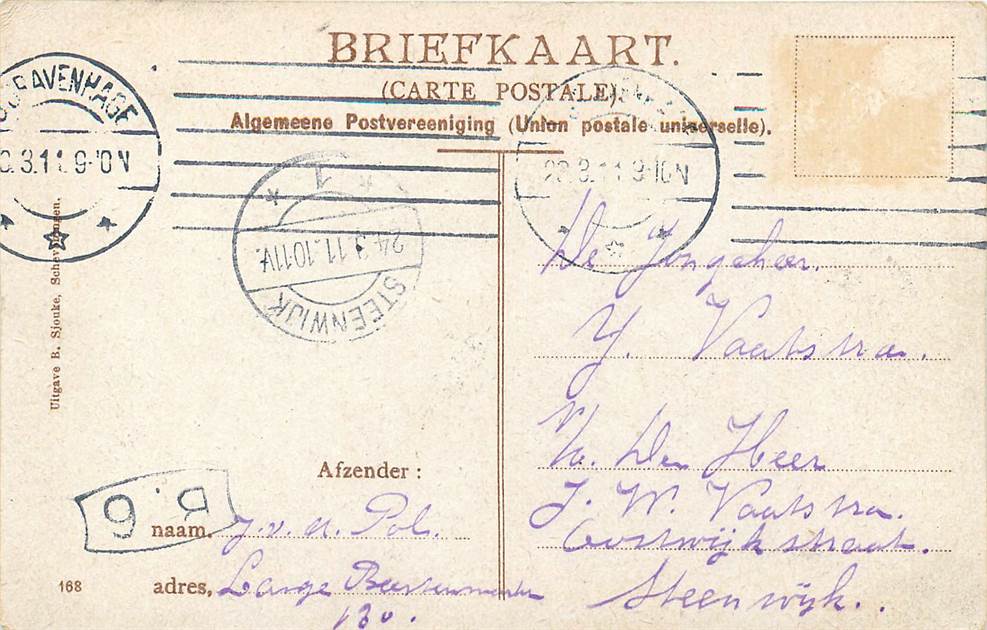 BRIEFKAART.
(CARTE POSTALE).
Algemeene Postvereeniging (Union postale universelle).
'SGRAVENHAGE
3.11 9-10N
23.3.11 9-10N
1
24.3.11.10-11V.
STEENWIJK
Uitgave B. Sjouke, Scheveningen.
De Jongeheer.
Y. Vaatstra.
De Heer
J. W. Vaatstra.
Oostwijkstraat.
Steenwijk.
Afzender:
naam. J. v. d. Pol.
adres, Lange Beestenmarkt
130.
168